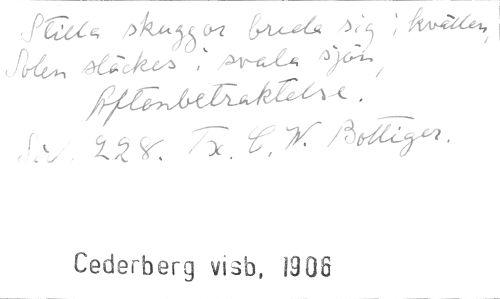 Stilla skuggor breda sig i kvällen,
Solen släckes i svala sjön,
Aftonbetraktelse.
Sid. 228. Tx. C. W. Böttiger.
Cederberg visb, 1906